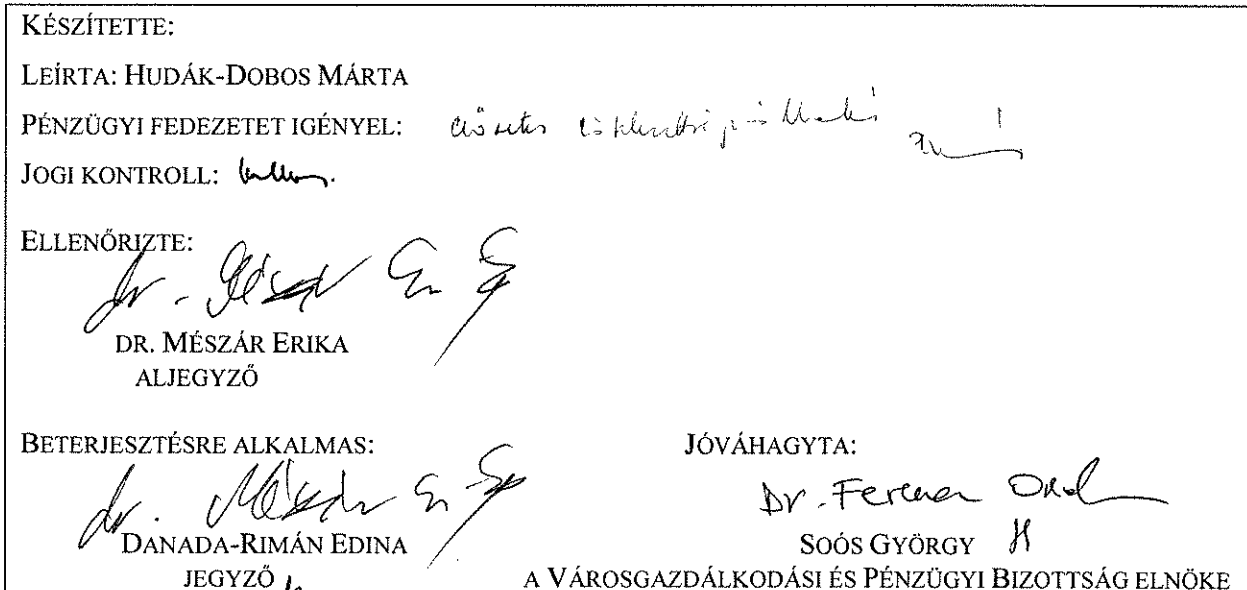 KÉSZÍTETTE:
LEÍRTA: HUDÁK-DOBOS MÁRTA
PÉNZÜGYI FEDEZETET IGÉNYEL:
JOGI KONTROLL:
ELLENŐRIZTE:
dr. Mészár
DR. MÉSZÁR ERIKA
ALJEGYZŐ
BETERJESZTÉSRE ALKALMAS:
dr. Mészár
DANADA-RIMÁN EDINA
JEGYZŐ
JÓVÁHAGYTA:
Dr. Ferencz
SOÓS GYÖRGY
A VÁROSGAZDÁLKODÁSI ÉS PÉNZÜGYI BIZOTTSÁG ELNÖKE